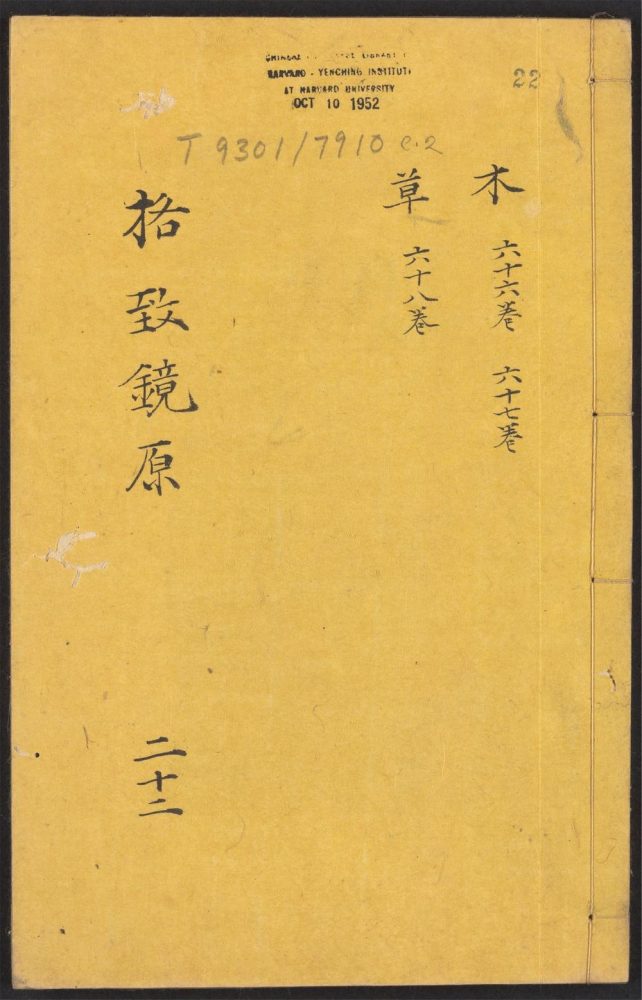 HARVARD - YENCHING INSTITUTE
AT HARVARD UNIVERSITY
OCT 10 1952
22
T 9301/7910 c.2
木 六十六卷 六十七卷
草 六十八卷
格致鏡原
二十二